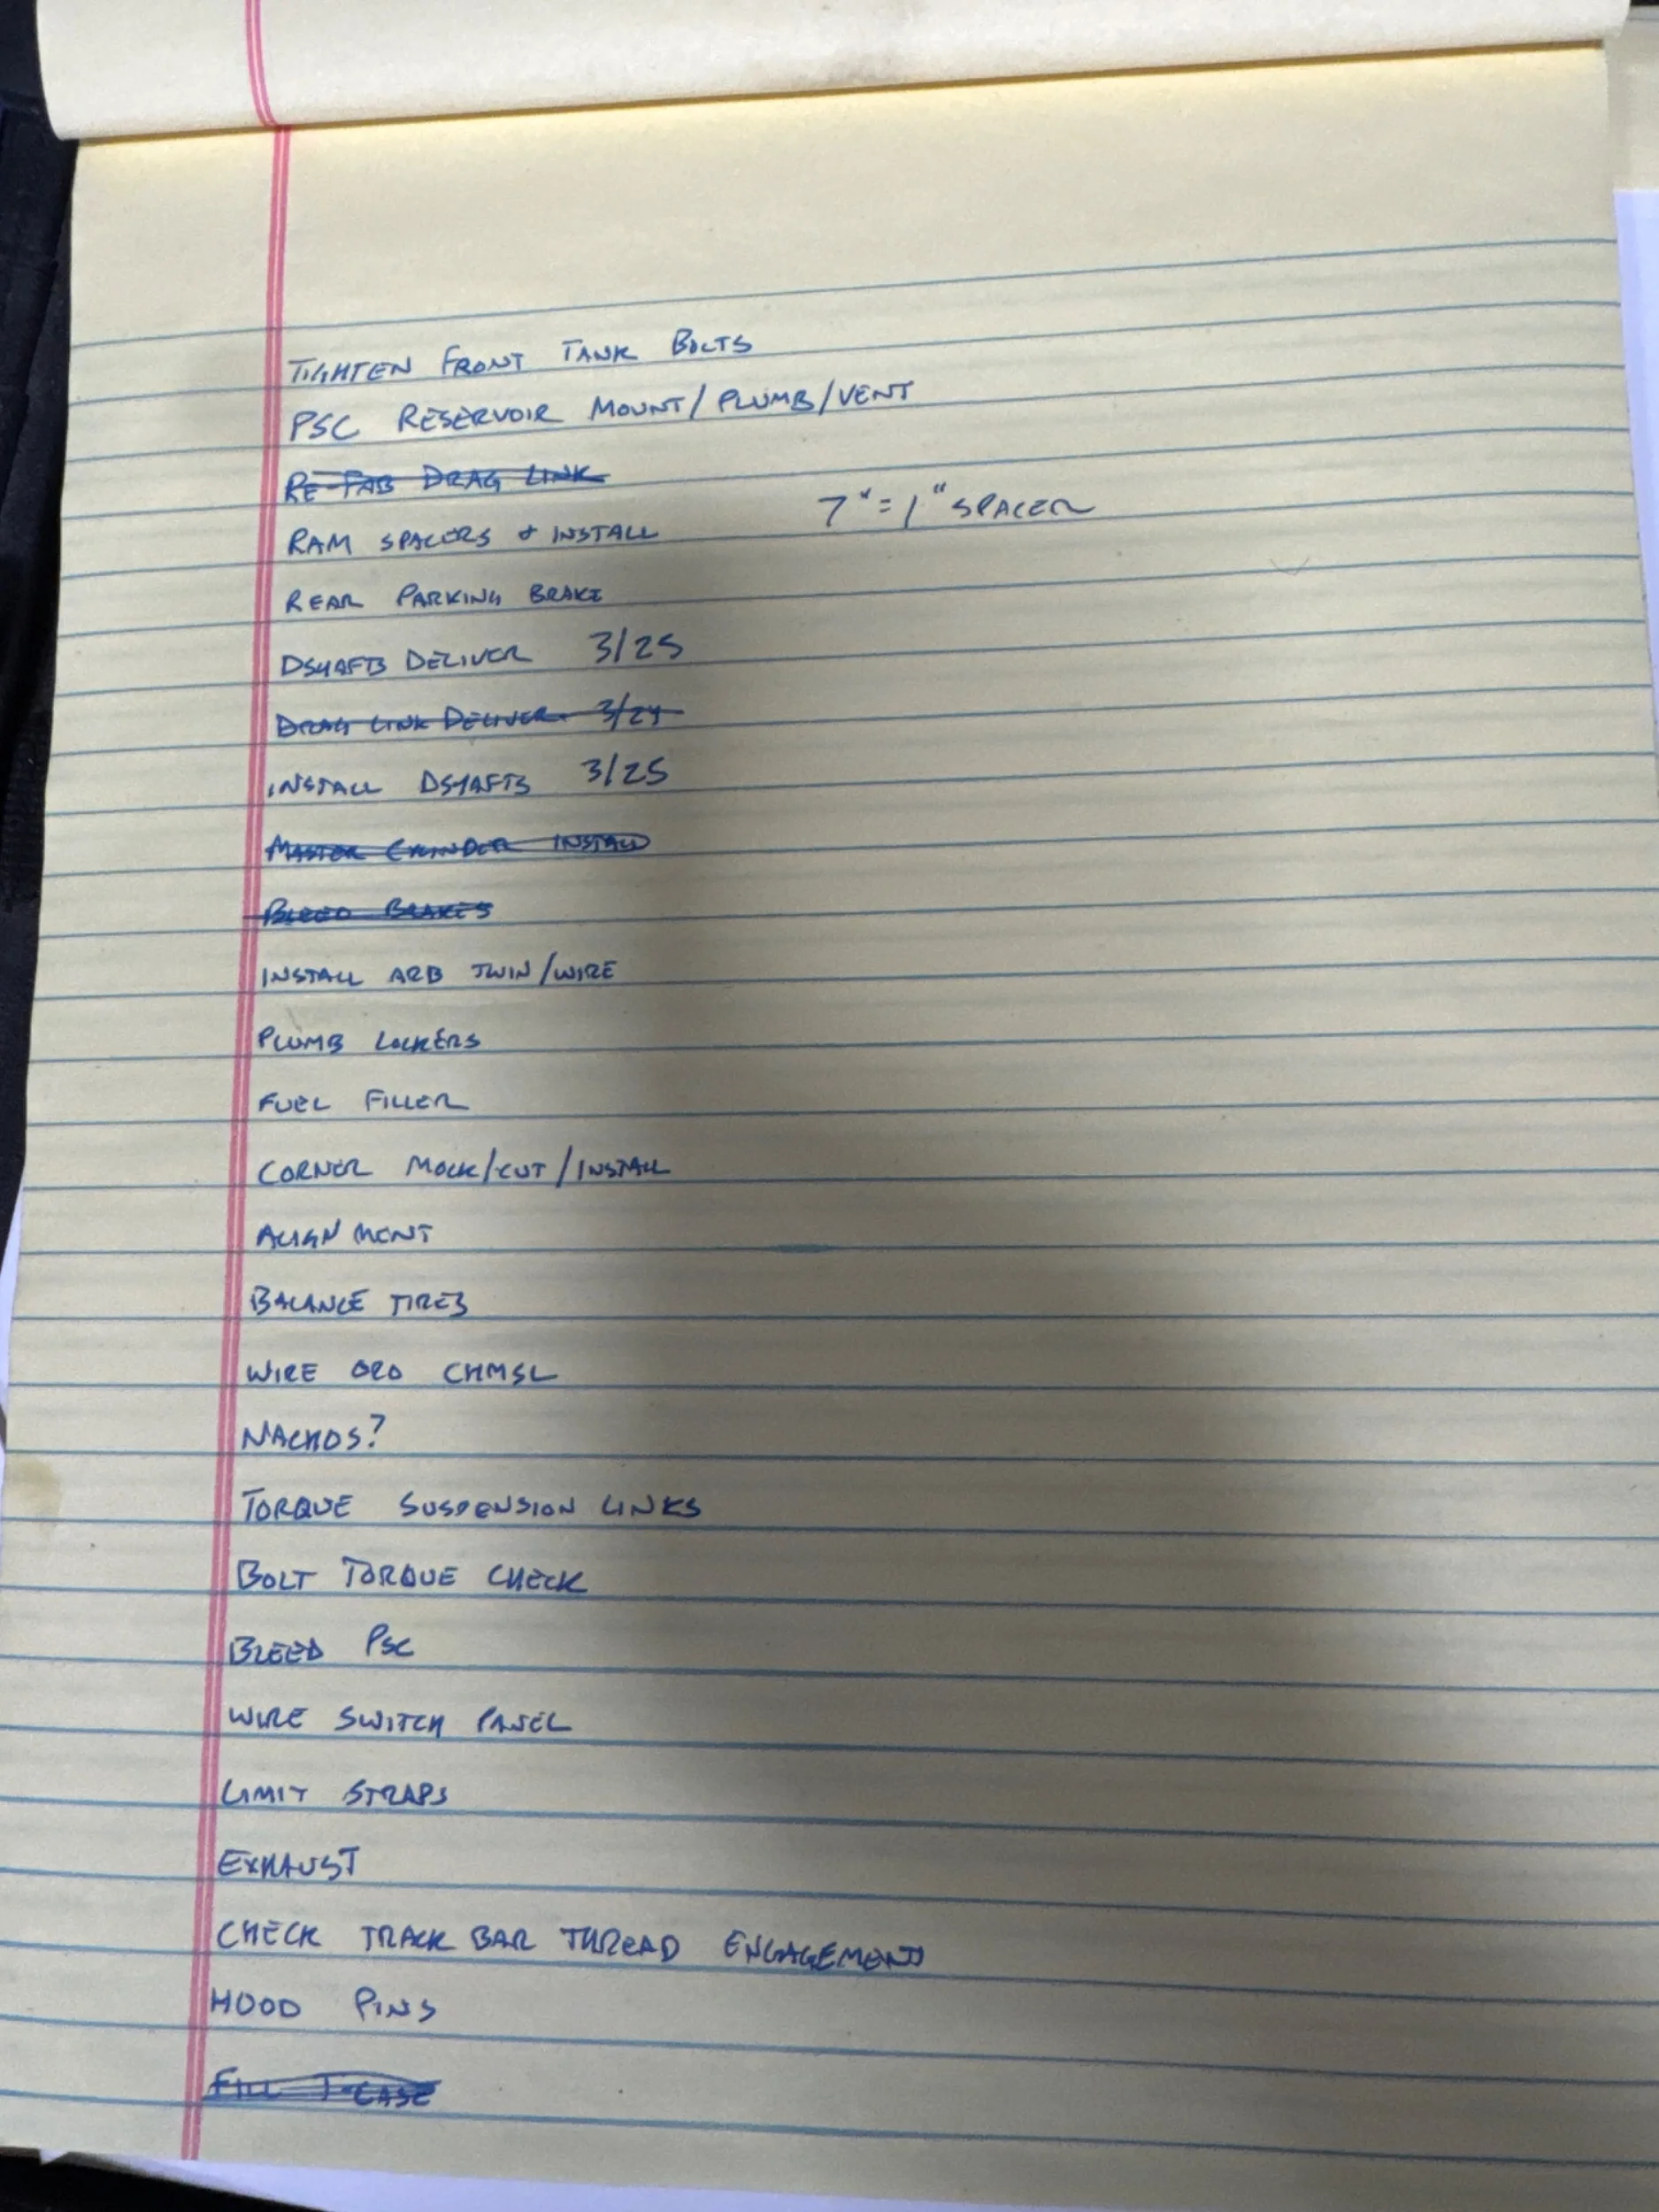 TIGHTEN FRONT TANK BOLTS
PSC RESERVOIR MOUNT/PLUMB/VENT
RE-FAB DRAG LINK
RAM SPACERS & INSTALL 7" = 1" SPACER
REAR PARKING BRAKE
DSHAFTS DELIVER 3/25
DRAG LINK DELIVER 3/24
INSTALL DSHAFTS 3/25
MASTER CYLINDER INSTALL
BLEED BRAKES
INSTALL ARB TWIN/WIRE
PLUMB LOCKERS
FUEL FILLER
CORNER MOCK/CUT/INSTALL
ALIGNMENT
BALANCE TIRES
WIRE ORO CHMSL
NACHOS?
TORQUE SUSPENSION LINKS
BOLT TORQUE CHECK
BLEED PSC
WIRE SWITCH PANEL
LIMIT STRAPS
EXHAUST
CHECK TRACK BAR THREAD ENGAGEMENT
HOOD PINS
FILL T-CASE